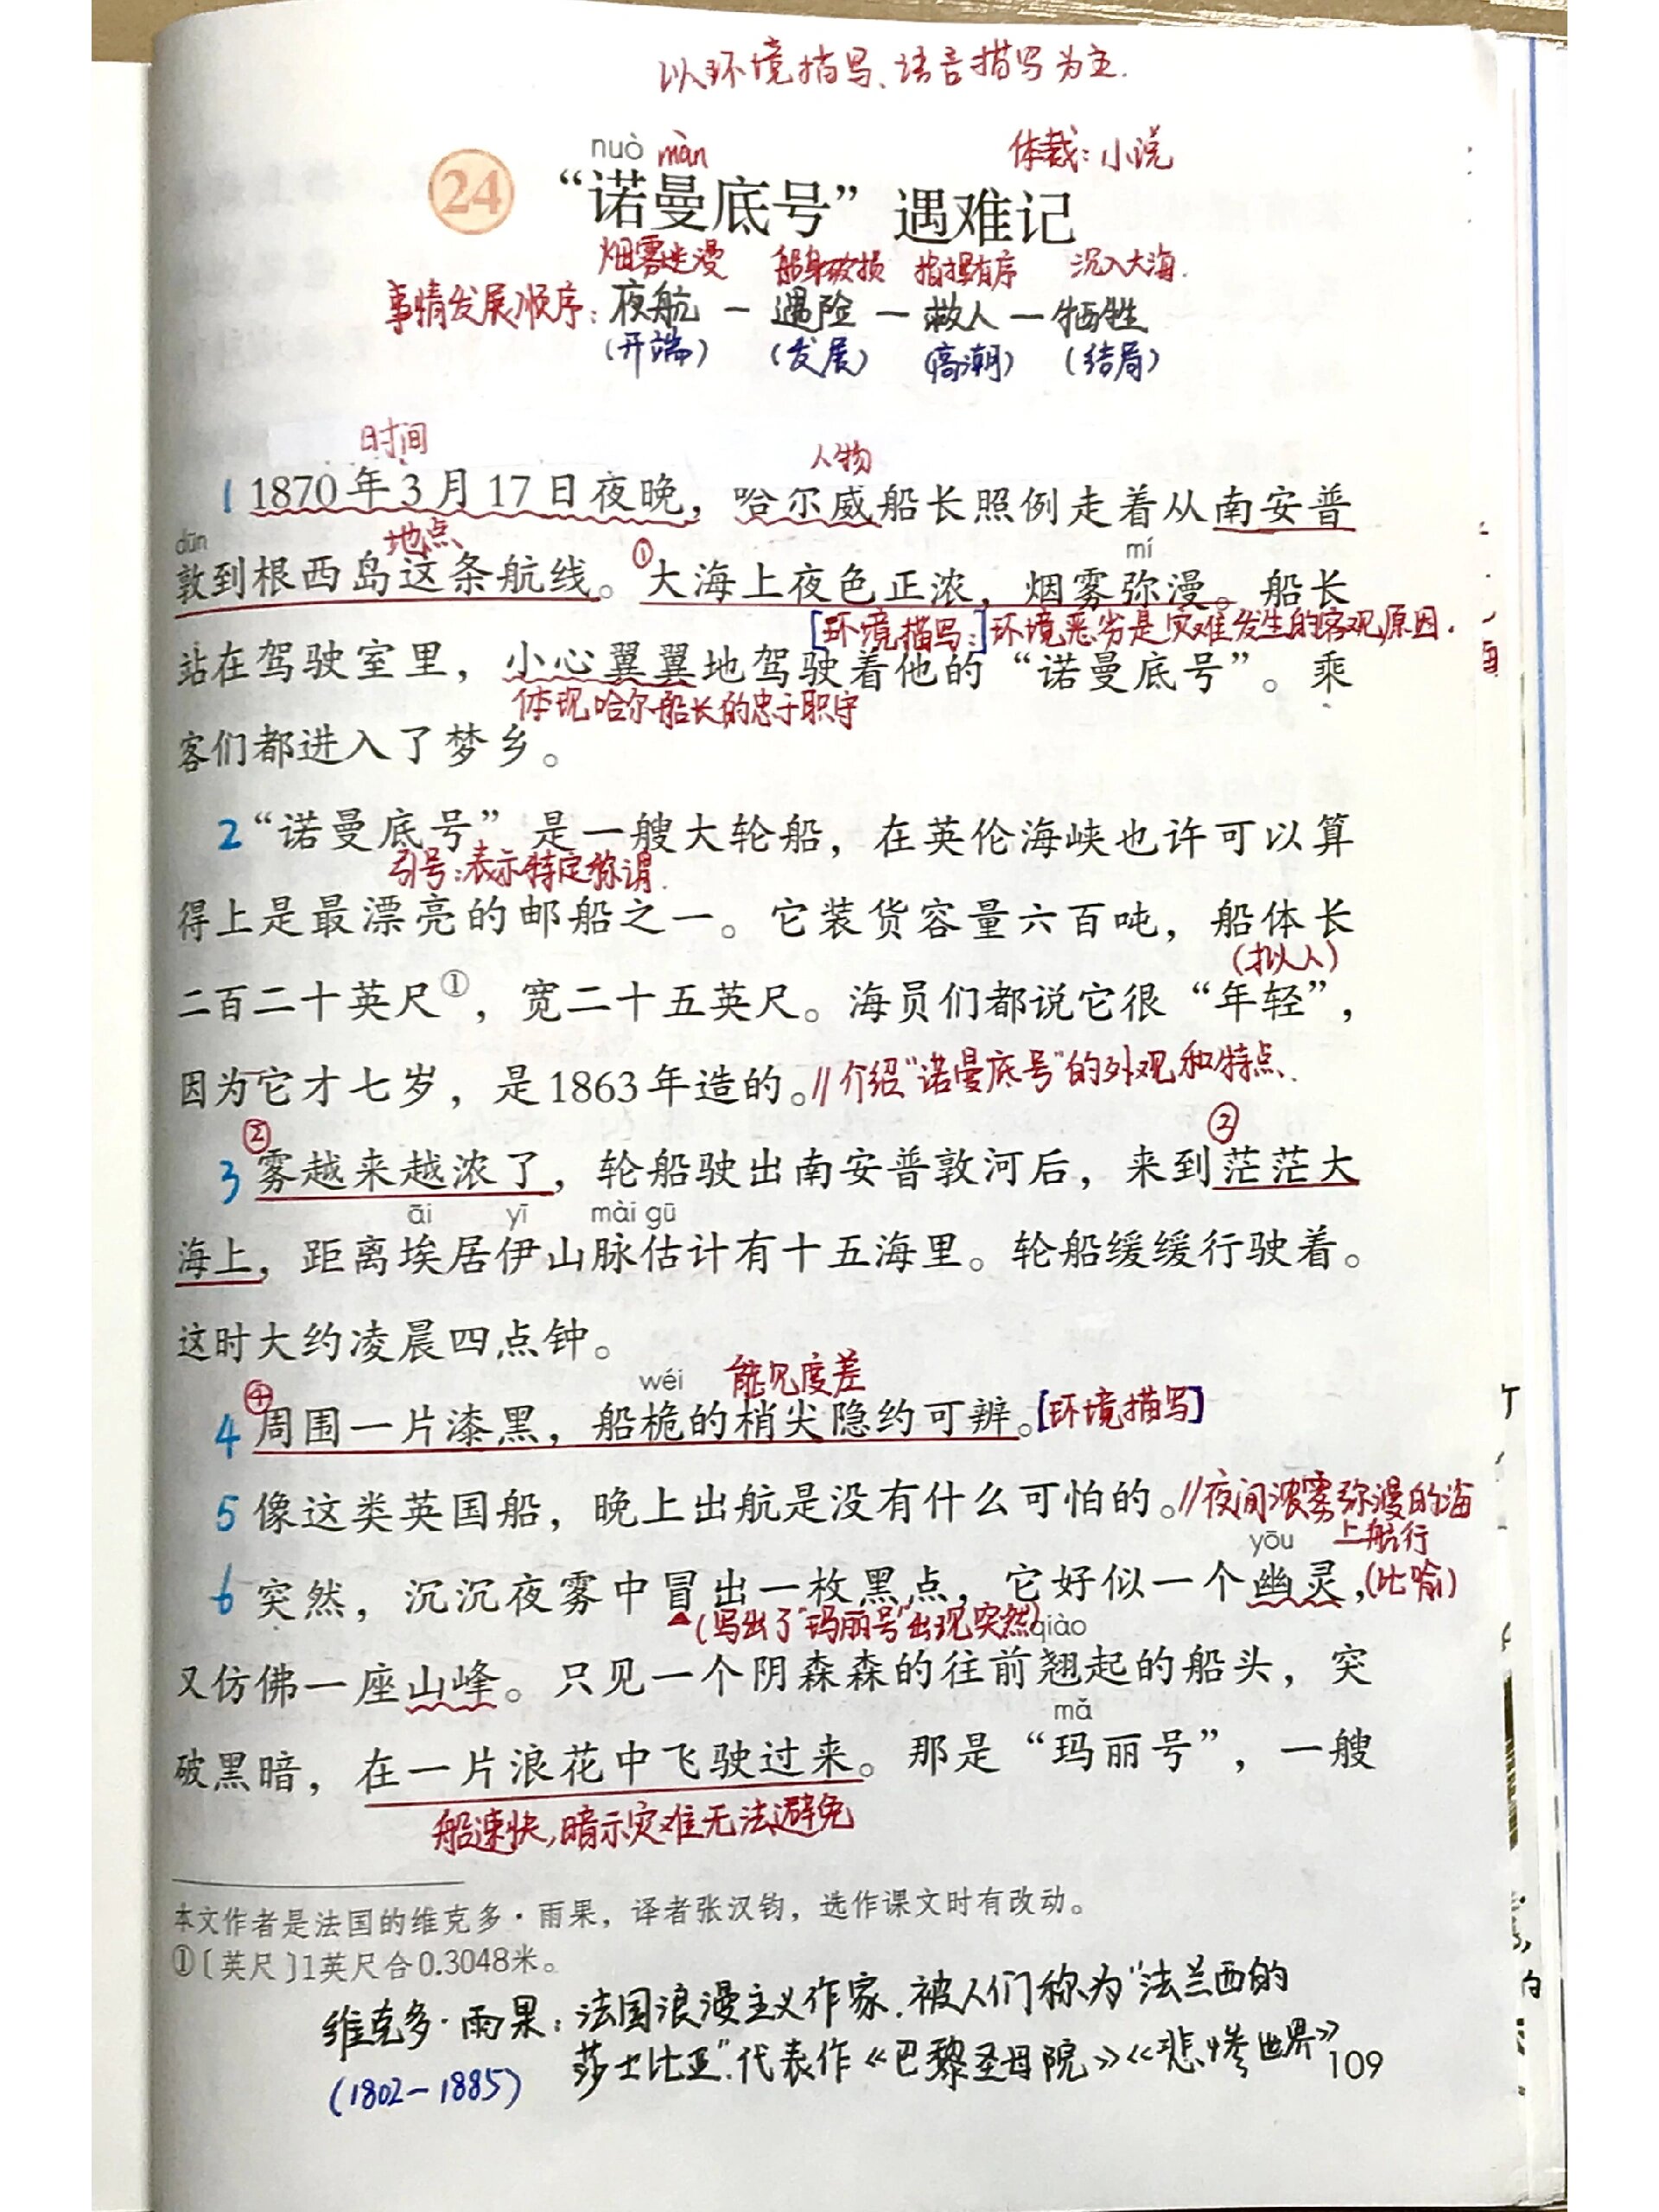 以环境描写、语言描写为主.
nuò màn 体裁：小说
24 “诺曼底号”遇难记
烟雾迷漫 船身破损 指挥有序 沉入大海.
事情发展顺序：夜航－遇险－救人－牺牲
（开端） （发展） （高潮） （结局）
时间 人物
1 1870年3月17日夜晚，哈尔威船长照例走着从南安普
dūn 地点 ① mí
敦到根西岛这条航线。大海上夜色正浓，烟雾弥漫。船长
[环境描写：]环境恶劣是灾难发生的客观原因.
站在驾驶室里，小心翼翼地驾驶着他的“诺曼底号”。乘
体现哈尔船长的忠于职守
客们都进入了梦乡。
2 “诺曼底号”是一艘大轮船，在英伦海峡也许可以算
引号：表示特定称谓.
得上是最漂亮的邮船之一。它装货容量六百吨，船体长
（拟人）
二百二十英尺①，宽二十五英尺。海员们都说它很“年轻”，
因为它才七岁，是1863年造的。//介绍“诺曼底号”的外观和特点.
② ③
3 雾越来越浓了，轮船驶出南安普敦河后，来到茫茫大
āi yī mài gū
海上，距离埃居伊山脉估计有十五海里。轮船缓缓行驶着。
这时大约凌晨四点钟。
④ wéi 能见度差
4 周围一片漆黑，船桅的梢尖隐约可辨。[环境描写]
5 像这类英国船，晚上出航是没有什么可怕的。//夜间浓雾弥漫的海
yōu 上航行
6 突然，沉沉夜雾中冒出一枚黑点，它好似一个幽灵，（比喻）
（写出了“玛丽号”出现突然） qiào
又仿佛一座山峰。只见一个阴森森的往前翘起的船头，突
mǎ
破黑暗，在一片浪花中飞驶过来。那是“玛丽号”，一艘
船速快，暗示灾难无法避免
本文作者是法国的维克多·雨果，译者张汉钧，选作课文时有改动。
①〔英尺〕1英尺合0.3048米。
维克多·雨果：法国浪漫主义作家.被人们称为“法兰西的
莎士比亚”.代表作《巴黎圣母院》《悲惨世界》
（1802－1885）
109